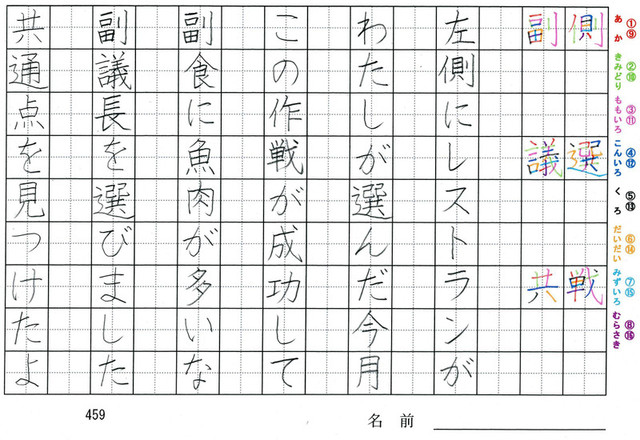 あか ①⑨
きみどり ②⑩
ももいろ ③⑪
こんいろ ④⑫
くろ ⑤⑬
だいだい ⑥⑭
みずいろ ⑦⑮
むらさき ⑧⑯
側 選 戦
副 議 共
左側にレストランが
わたしが選んだ今月
この作戦が成功して
副食に魚肉が多いな
副議長を選びました
共通点を見つけたよ
459
名前